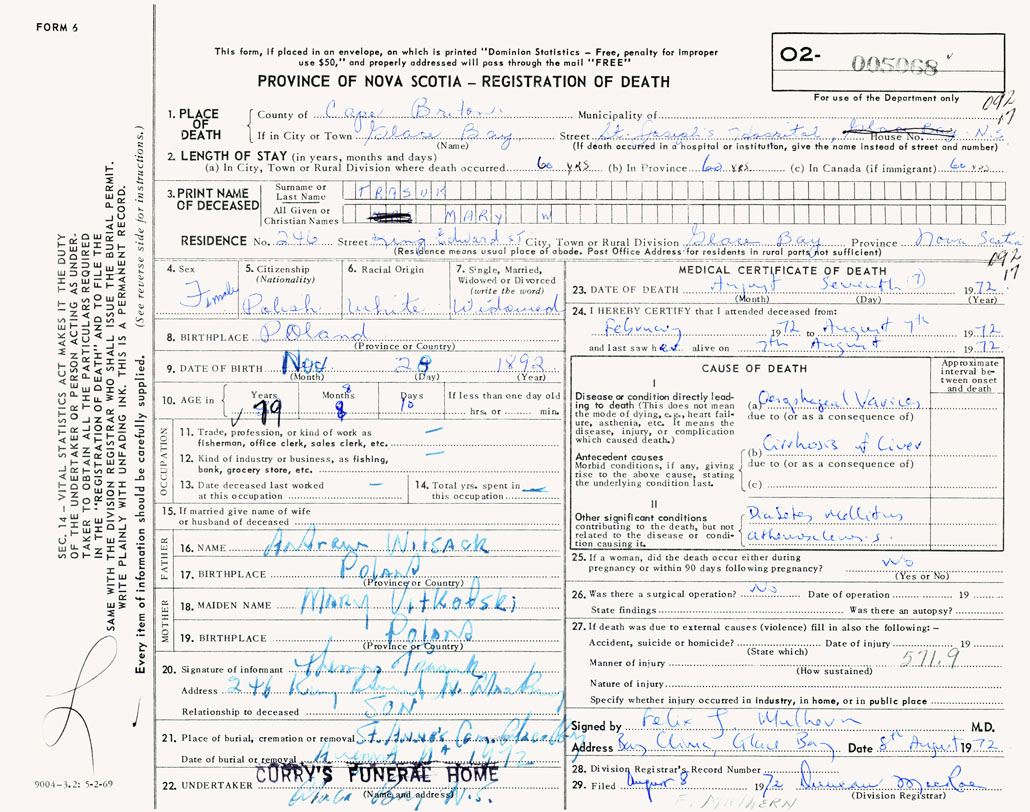 FORM 6
This form, if placed in an envelope, on which is printed "Dominion Statistics – Free, penalty for improper
use $50," and properly addressed will pass through the mail "FREE"
PROVINCE OF NOVA SCOTIA – REGISTRATION OF DEATH
O2- 005068
For use of the Department only
092
17
1. PLACE OF DEATH
County of Cape Briton. Municipality of
If in City or Town Glace Bay Street St. Joseph's Hospital, Glace Bay N.S
(Name) House No.
(If death occurred in a hospital or institution, give the name instead of street and number)
2. LENGTH OF STAY (in years, months and days)
(a) In City, Town or Rural Division where death occurred 60 yrs (b) In Province 60 yrs. (c) In Canada (if immigrant) 60 yrs
3. PRINT NAME OF DECEASED
Surname or Last Name TRASUK
All Given or Christian Names MARY W
RESIDENCE No. 246 Street King Edward St City, Town or Rural Division Glace Bay Province Nova Scotia
(Residence means usual place of abode. Post Office Address for residents in rural parts, not sufficient)
092
17
4. Sex
Female
5. Citizenship
(Nationality)
Polish
6. Racial Origin
White
7. Single, Married,
Widowed or Divorced
(write the word)
Widowed
8. BIRTHPLACE Poland
(Province or Country)
9. DATE OF BIRTH Nov 28 1892
(Month) (Day) (Year)
10. AGE in Years Months Days If less than one day old
79 8 8 10 hrs. or min.
OCCUPATION
11. Trade, profession, or kind of work as
fisherman, office clerk, sales clerk, etc. —
12. Kind of industry or business, as fishing,
bank, grocery store, etc. —
13. Date deceased last worked
at this occupation —
14. Total yrs. spent in
this occupation —
15. If married give name of wife
or husband of deceased
FATHER
16. NAME Andrew Witsack
17. BIRTHPLACE Poland
(Province or Country)
MOTHER
18. MAIDEN NAME Mary Vitkofski
19. BIRTHPLACE Poland
(Province or Country)
20. Signature of informant Thomas Trasuk
Address 246 King
Relationship to deceased SON
21. Place of burial, cremation or removal St. Anne's Cem. Glace Bay
Date of burial or removal August 1972
CURRY'S FUNERAL HOME
22. UNDERTAKER Glace Bay N.S.
(Name and address)
MEDICAL CERTIFICATE OF DEATH
23. DATE OF DEATH August Seventh (7) 1972
(Month) (Day) (Year)
24. I HEREBY CERTIFY that I attended deceased from:
February 1972 to August 7th 1972
and last saw her alive on 7th August 1972
CAUSE OF DEATH
Approximate
interval be-
tween onset
and death
I
Disease or condition directly lead-
ing to death (This does not mean
the mode of dying, e.g., heart fail-
ure, asthenia, etc. It means the
disease, injury, or complication
which caused death.)
(a) Oesophageal Varices
due to (or as a consequence of)
Antecedent causes
Morbid conditions, if any, giving
rise to the above cause, stating
the underlying condition last.
(b) Cirrhosis of Liver
due to (or as a consequence of)
(c)
II
Other significant conditions
contributing to the death, but not
related to the disease or condi-
tion causing it.
Diabetes Mellitus
atherosclerosis.
25. If a woman, did the death occur either during
pregnancy or within 90 days following pregnancy? No
(Yes or No)
26. Was there a surgical operation? No Date of operation 19
State findings Was there an autopsy?
27. If death was due to external causes (violence) fill in also the following: –
Accident, suicide or homicide? Date of injury 19
(State which)
Manner of injury 571.9
(How sustained)
Nature of injury
Specify whether injury occurred in industry, in home, or in public place
Signed by Felix J Mulhern M.D.
Address Bay Clinic Glace Bay Date 8th August 1972
28. Division Registrar's Record Number
29. Filed August 8 1972 Duncan MacRae
(Division Registrar)
F. MULHERN
SEC. 14 – VITAL STATISTICS ACT MAKES IT THE DUTY
OF THE UNDERTAKER OR PERSON ACTING AS UNDER-
TAKER TO OBTAIN ALL THE PARTICULARS REQUIRED
IN THE "REGISTRATION OF DEATH" AND FILE THE
SAME WITH THE DIVISION REGISTRAR WHO SHALL ISSUE THE BURIAL PERMIT.
WRITE PLAINLY WITH UNFADING INK. THIS IS A PERMANENT RECORD.
Every item of information should be carefully supplied. (See reverse side for instructions.)
9004-3.2: 5-2-69